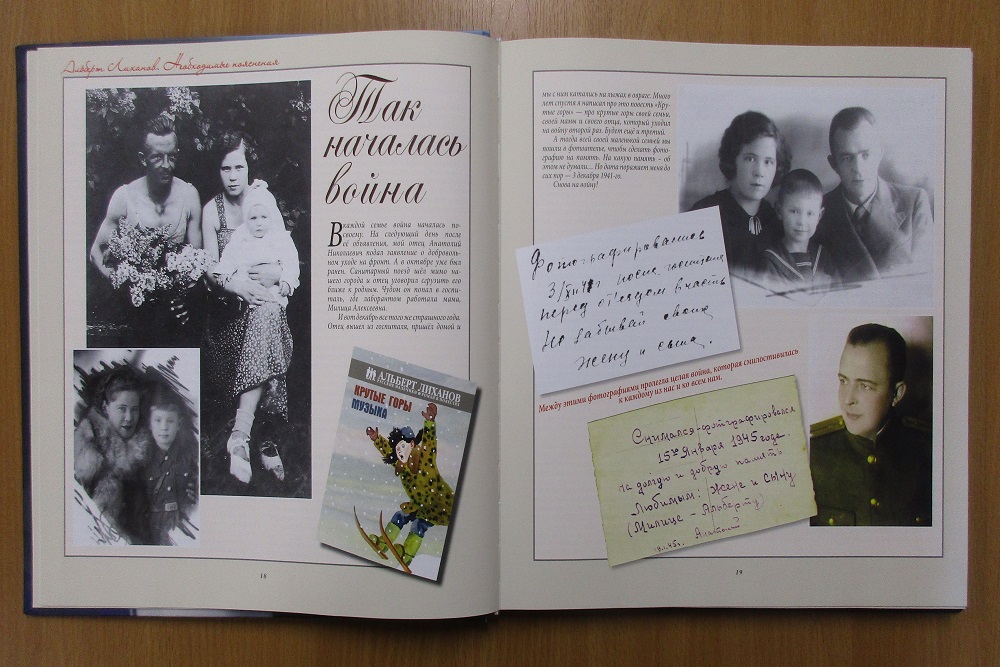 Альберт Лиханов. Необходимые пояснения
Так
началась
война
В каждой семье война началась по-
своему. На следующий день после
её объявления, мой отец Анатолий
Николаевич подал заявление о доброволь-
ном уходе на фронт. А в октябре уже был
ранен. Санитарный поезд шёл мимо на-
шего города и отец уговорил сгрузить его
ближе к родным. Чудом он попал в госпи-
таль, где лаборантом работала мама,
Милица Алексеевна.
И вот декабрь все того же страшного года.
Отец вышел из госпиталя, пришёл домой и
АЛЬБЕРТ ЛИХАНОВ
КРУТЫЕ ГОРЫ
МУЗЫКА
18
мы с ним катались на лыжах в овраге. Много
лет спустя я написал про это повесть «Кру-
тые горы» — про крутые горы своей семьи,
своей мамы и своего отца, который уходил
на войну второй раз. Будет ещё и третий.
А тогда всей своей маленькой семьей мы
пошли в фотоателье, чтобы сделать фото-
графию на память. На какую память – об
этом не думали... Но дата поражает меня до
сих пор — 3 декабря 1941-го.
Снова на войну!
Фотографировались
3/XII 41 г после госпиталя
перед отъездом в часть
Не забывай своих
жену и сына.
Между этими фотографиями пролегла целая война, которая смилостивилась
к каждому из нас и ко всем нам.
Снимался-фотографировался
15го Января 1945 годе.
На долгую и добрую память
Любимым: Жене и Сыну
(Милице – Альберту)
Анатолий
19